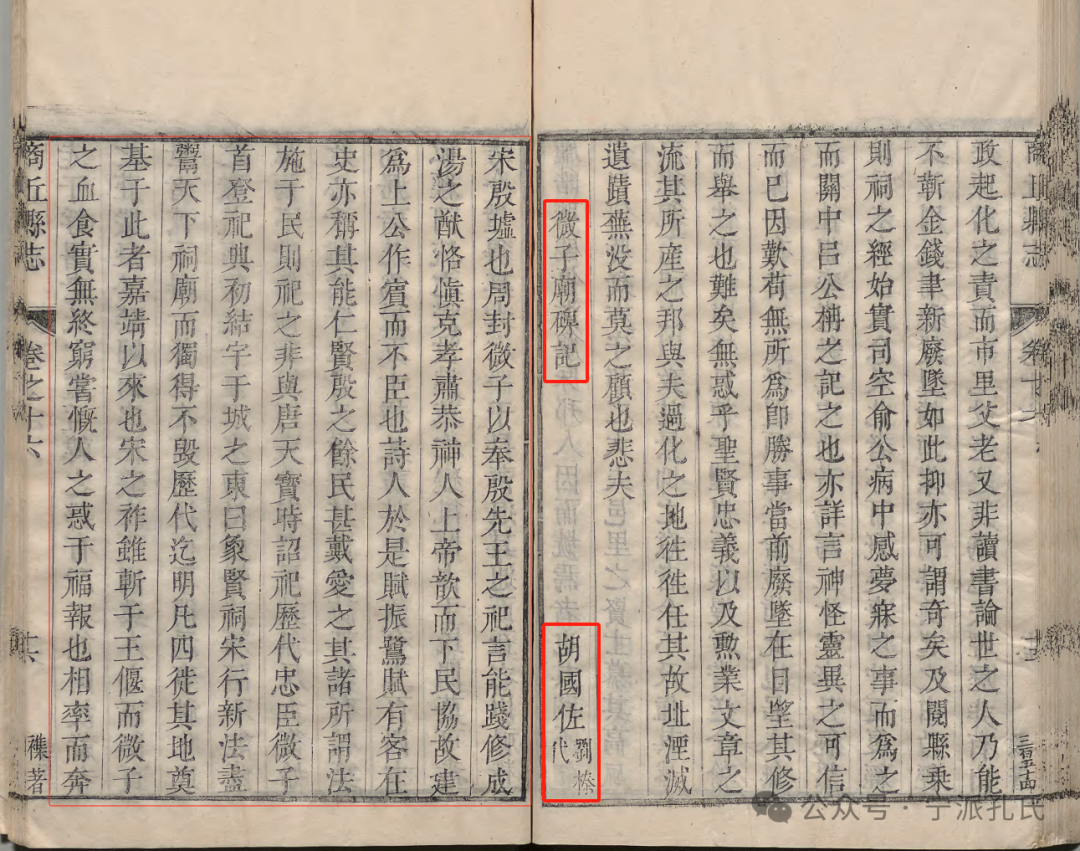 商丘縣志
卷十六
政起化之責而市里父老又非讀書論世之人乃能
不蘄金錢聿新廢墜如此抑亦可謂奇矣及閱縣乗
則祠之經始實司空俞公病中感夢寐之事而為之
而關中呂公構之記之也亦詳言神怪靈異之可信
而已因歎苟無所為卽勝事當前廢墜在目望其修
而舉之也難矣無惑乎聖賢忠義以及勲業文章之
流其所產之邦與夫過化之地徃徃任其故址湮滅
遺蹟蕪没而莫之顧也悲夫
微子廟碑記
胡國佐
劉榛
代
宋殷墟也周封微子以奉殷先王之祀言能踐修成
湯之猷恪慎克孝肅恭神人上帝歆而下民協故建
為上公作賓而不臣也詩人於是賦振鷺賦有客在
史亦稱其能仁賢殷之餘民甚戴愛之其諸所謂法
施于民則祀之非與唐天寶時詔祀歷代忠臣微子
首登祀典初結宇于城之東曰象賢祠宋行新法盡
鬻天下祠廟而獨得不毀歷代迄明凡四徙其地奠
基于此者嘉靖以來也宋之祚雖斬于王偃而微子
之血食實無終窮嘗慨人之惑于福報也相率而奔
商丘縣志
卷之十六
襍著
公众号·宁派孔氏